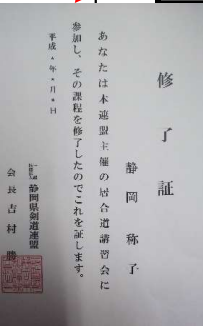 修了証
静岡称子
あなたは本連盟主催の居合道講習会に
参加し、その課程を修了したのでこれを証します。
平成＊年＊月＊日
静岡県剣道連盟
会長吉村勝